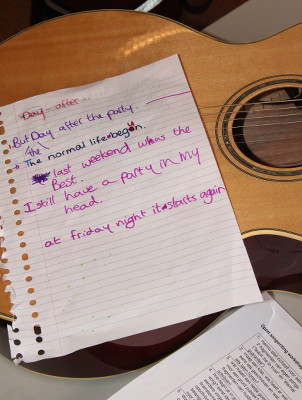 Day - after
But Day after the party.
the
The normal life began.
last weekend was the
Best.
I still have a party in my
head.
at friday night it starts again